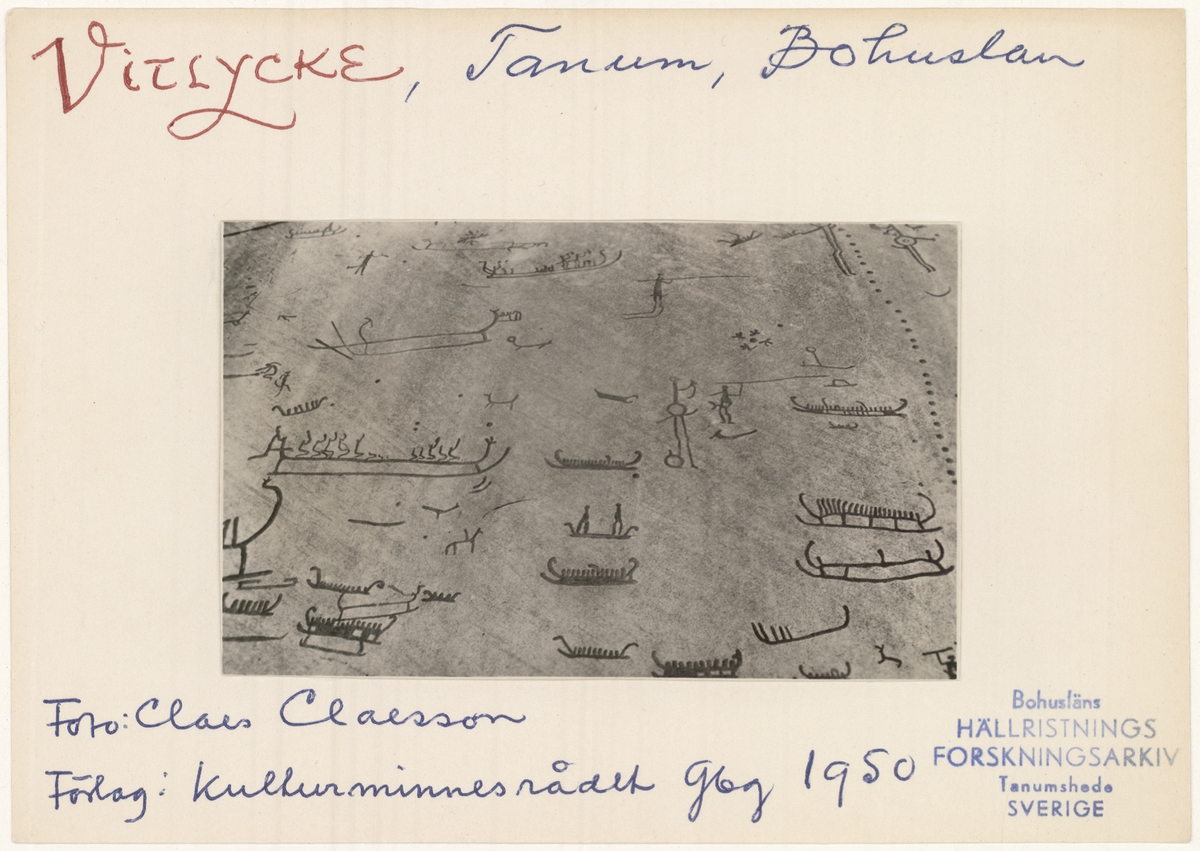 VITLYCKE, Tanum, Bohuslan
Foto: Claes Claesson
Förlag: Kulturminnesrådet Gbg 1950
Bohusläns
HÄLLRISTNINGS
FORSKNINGSARKIV
Tanumshede
SVERIGE